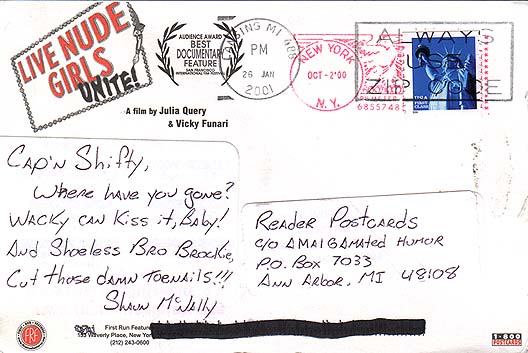 LIVE NUDE
GIRLS
UNITE!
AUDIENCE AWARD
BEST
DOCUMENTARY
FEATURE
SAN FRANCISCO
INTERNATIONAL FILM FESTIVAL
A film by Julia Query
& Vicky Funari
PM
26 JAN
2001
NEW YORK
OCT-2'00
N.Y.
6855748
ALWAYS
USE
ZIP CODE
Cap'n Shifty,
Where have you gone?
Wacky can kiss it, Baby!
And Shoeless Bro Brockie,
Cut those damn toenails!!!
Shawn McNally
Reader Postcards
c/o Amalgamated Humor
P.O. Box 7033
Ann Arbor, MI 48108
FRF
First Run Feature
153 Waverly Place, New York
(212) 243-0600
1-800
POSTCARDS